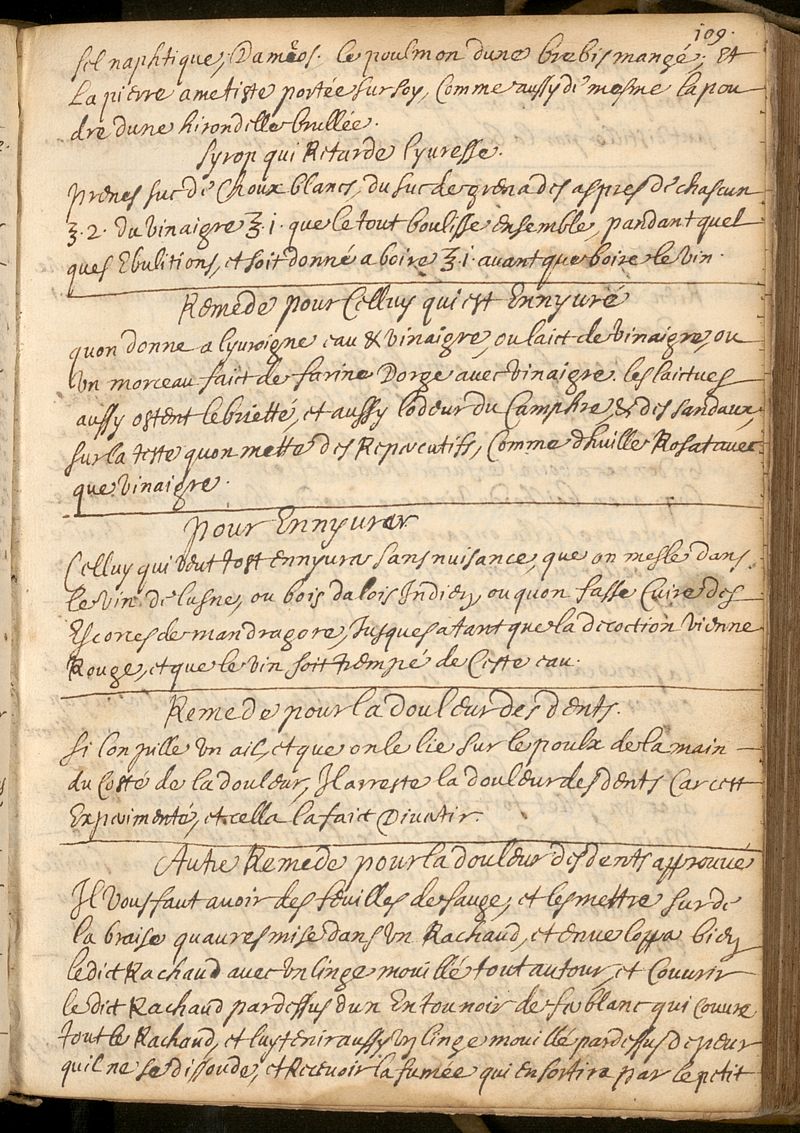 109.
sel naphtique, Daméos. le poulmon dune brebis mangé, Et
La pierre ametiste portée sur soy, Comme aussy de mesme la pou
dre dune hirondelle brullée.
Syrop qui Retarde lyuresse.
prenes suc de Choux blancs, du suc de grenades aspres de chascun
ʒ. 2. du vinaigre ʒ. i. que le tout boulisse ensemble, pandant quel
ques Ebulitions, et soit donné a boire ʒ. i. auant que boire le vin.
Remede pour Celluy qui est Ennyuré
quon donne a lyuroigne eau & vinaigre, ou laict de vinaigre, ou
vn morceau faict de farine Dorge auec vinaigre. les laictues
aussy ostent lebrietté, et aussy lodeur du Camphre, & des sandaux,
sur la teste quon mette des Repercutifs, Comme dhuille Rosat auec
que vinaigre.
pour Ennyurer
Celluy qui veut tost ennyurer sans nuisance, que on mesle dans
le vin de lusne, ou bois dalois Indien, ou quon fasse Cuire des
Escorces de mandragore, Jusques a tant que la decoction vienne
Rouge, et que le vin soit trempé de Ceste eau.
Remede pour la douleur des dents.
Si lon pille vn ail, et que on le lie sur le poulx de la main
du Costé de la douleur, Il arreste la douleur des dents Car cest
Experimenté, et cella la faict Diuertir.
Autre Remede pour la douleur des dents approuué
Il vous faut auoir des feuilles de sauge, et les mettre sur de
la braise quaures mise dans vn Rachaud, et enueloppa bien
le dict Rachaud auec vn linge mouillé tout autour, et Couurir
le dict Rachaud par dessus dun Entounoir de fer blanc qui couure
tout le Rachaud, et luy tenir aussy vn linge mouillé par dessus de peur
quil ne se dissoude, et Receuoir la fumée qui en sortira par le petit